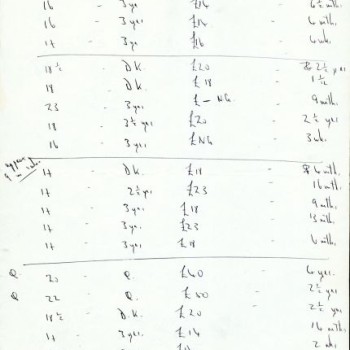 16 - 3 yrs £16 - 6½ mth.
16 - 3 yrs. £16 - 6 mth.
14 - 3 yrs £16 - 6 wk.
18½ - D.K. £20 - 2½ yrs
18 - D.K. £18 - 1½
23 - 3 yrs. £ - NG. - 9 mth.
18 - 3½ yrs £20 - 2½ yrs
16 - 3 yrs. £NG - 3 wk.
17 - DK. £18 - 6 mth.
17 - 2½ yrs. £23 - 16 mth.
17 - 3 yrs £18 - 9 mth.
17 - 3 yrs. £23 -
17 - 3 yrs £18 - 6 mth.
Q. 20 - Q. £60 - 6 yrs.
Q 22 - Q. £60 - 2½ yrs
18½ - D.K. £20 - 2½ yrs
17 - 3 yrs. £16 - 16 mth.
3 yrs. 2 wk.